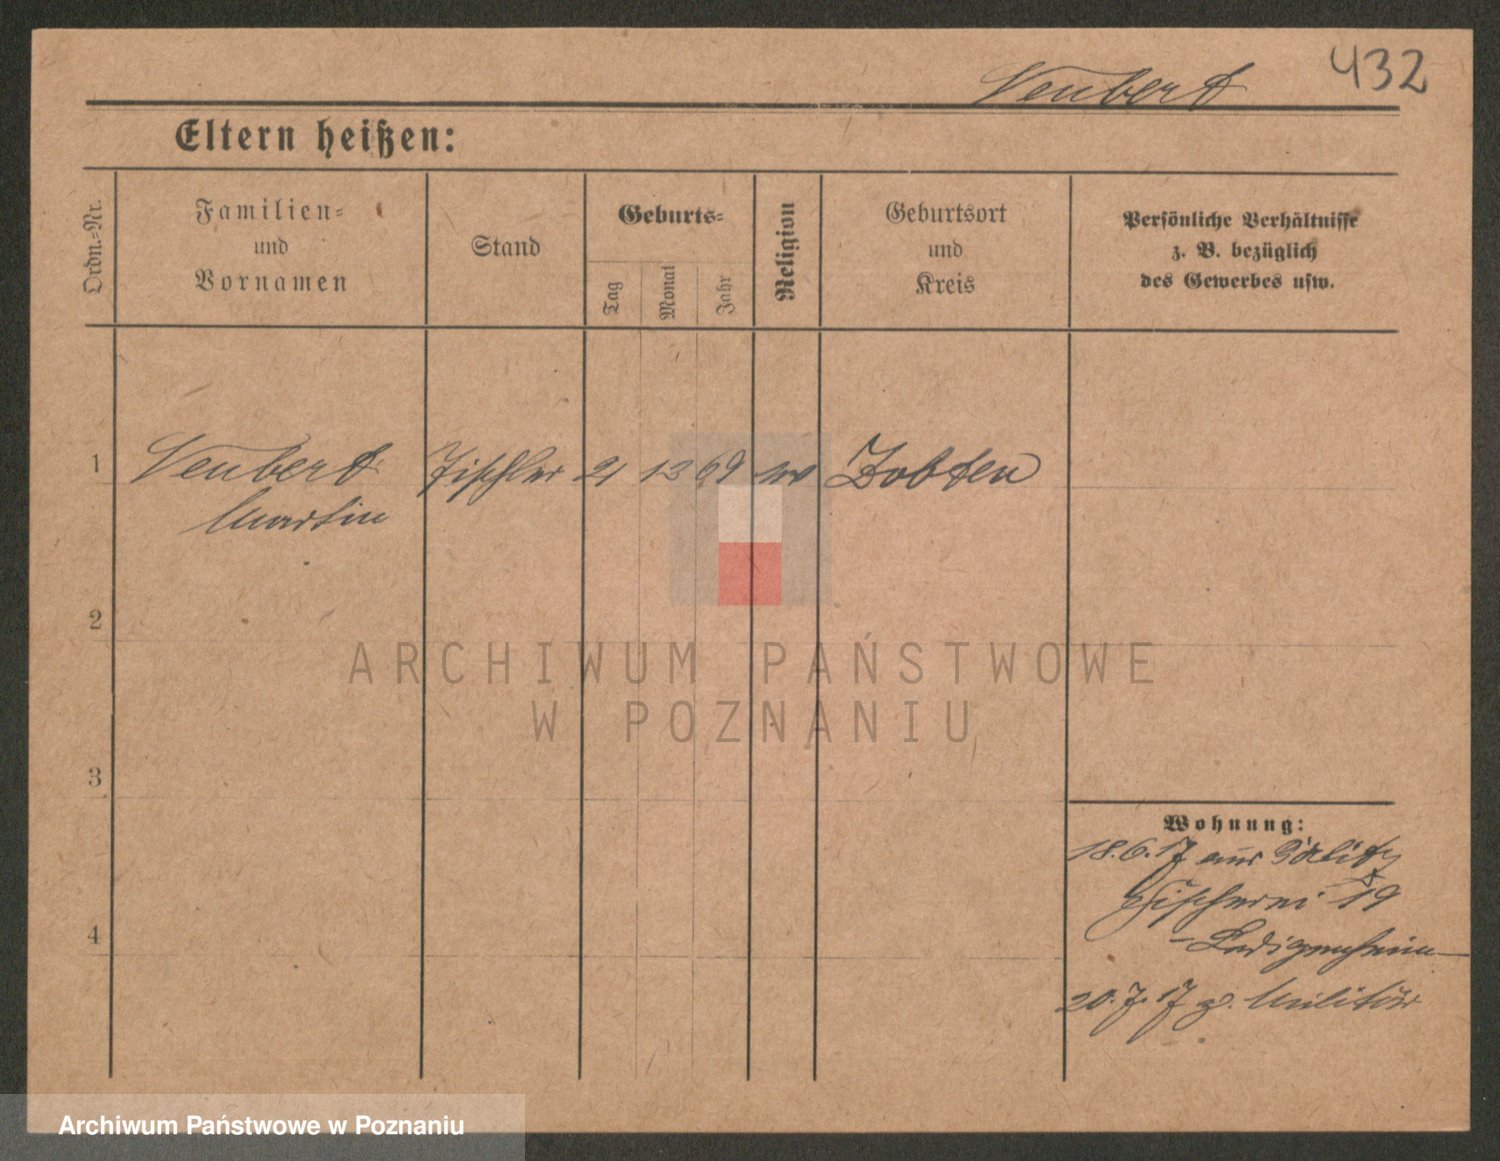 Neubert 432
Eltern heißen:
Ordn.-Nr.
Familien-
und
Vornamen
Stand
Geburts-
Tag
Monat
Jahr
Religion
Geburtsort
und
Kreis
Persönliche Verhältnisse
z. B. bezüglich
des Gewerbes usw.
1 Neubert Tischler 21 12 69 Zobten
Martin
2
3
4
Wohnung:
18.6.17 aus Görlitz
Fischerei 19
- Ledigenheim -
20.7.17 z. Militär
ARCHIWUM PAŃSTWOWE
W POZNANIU
Archiwum Państwowe w Poznaniu